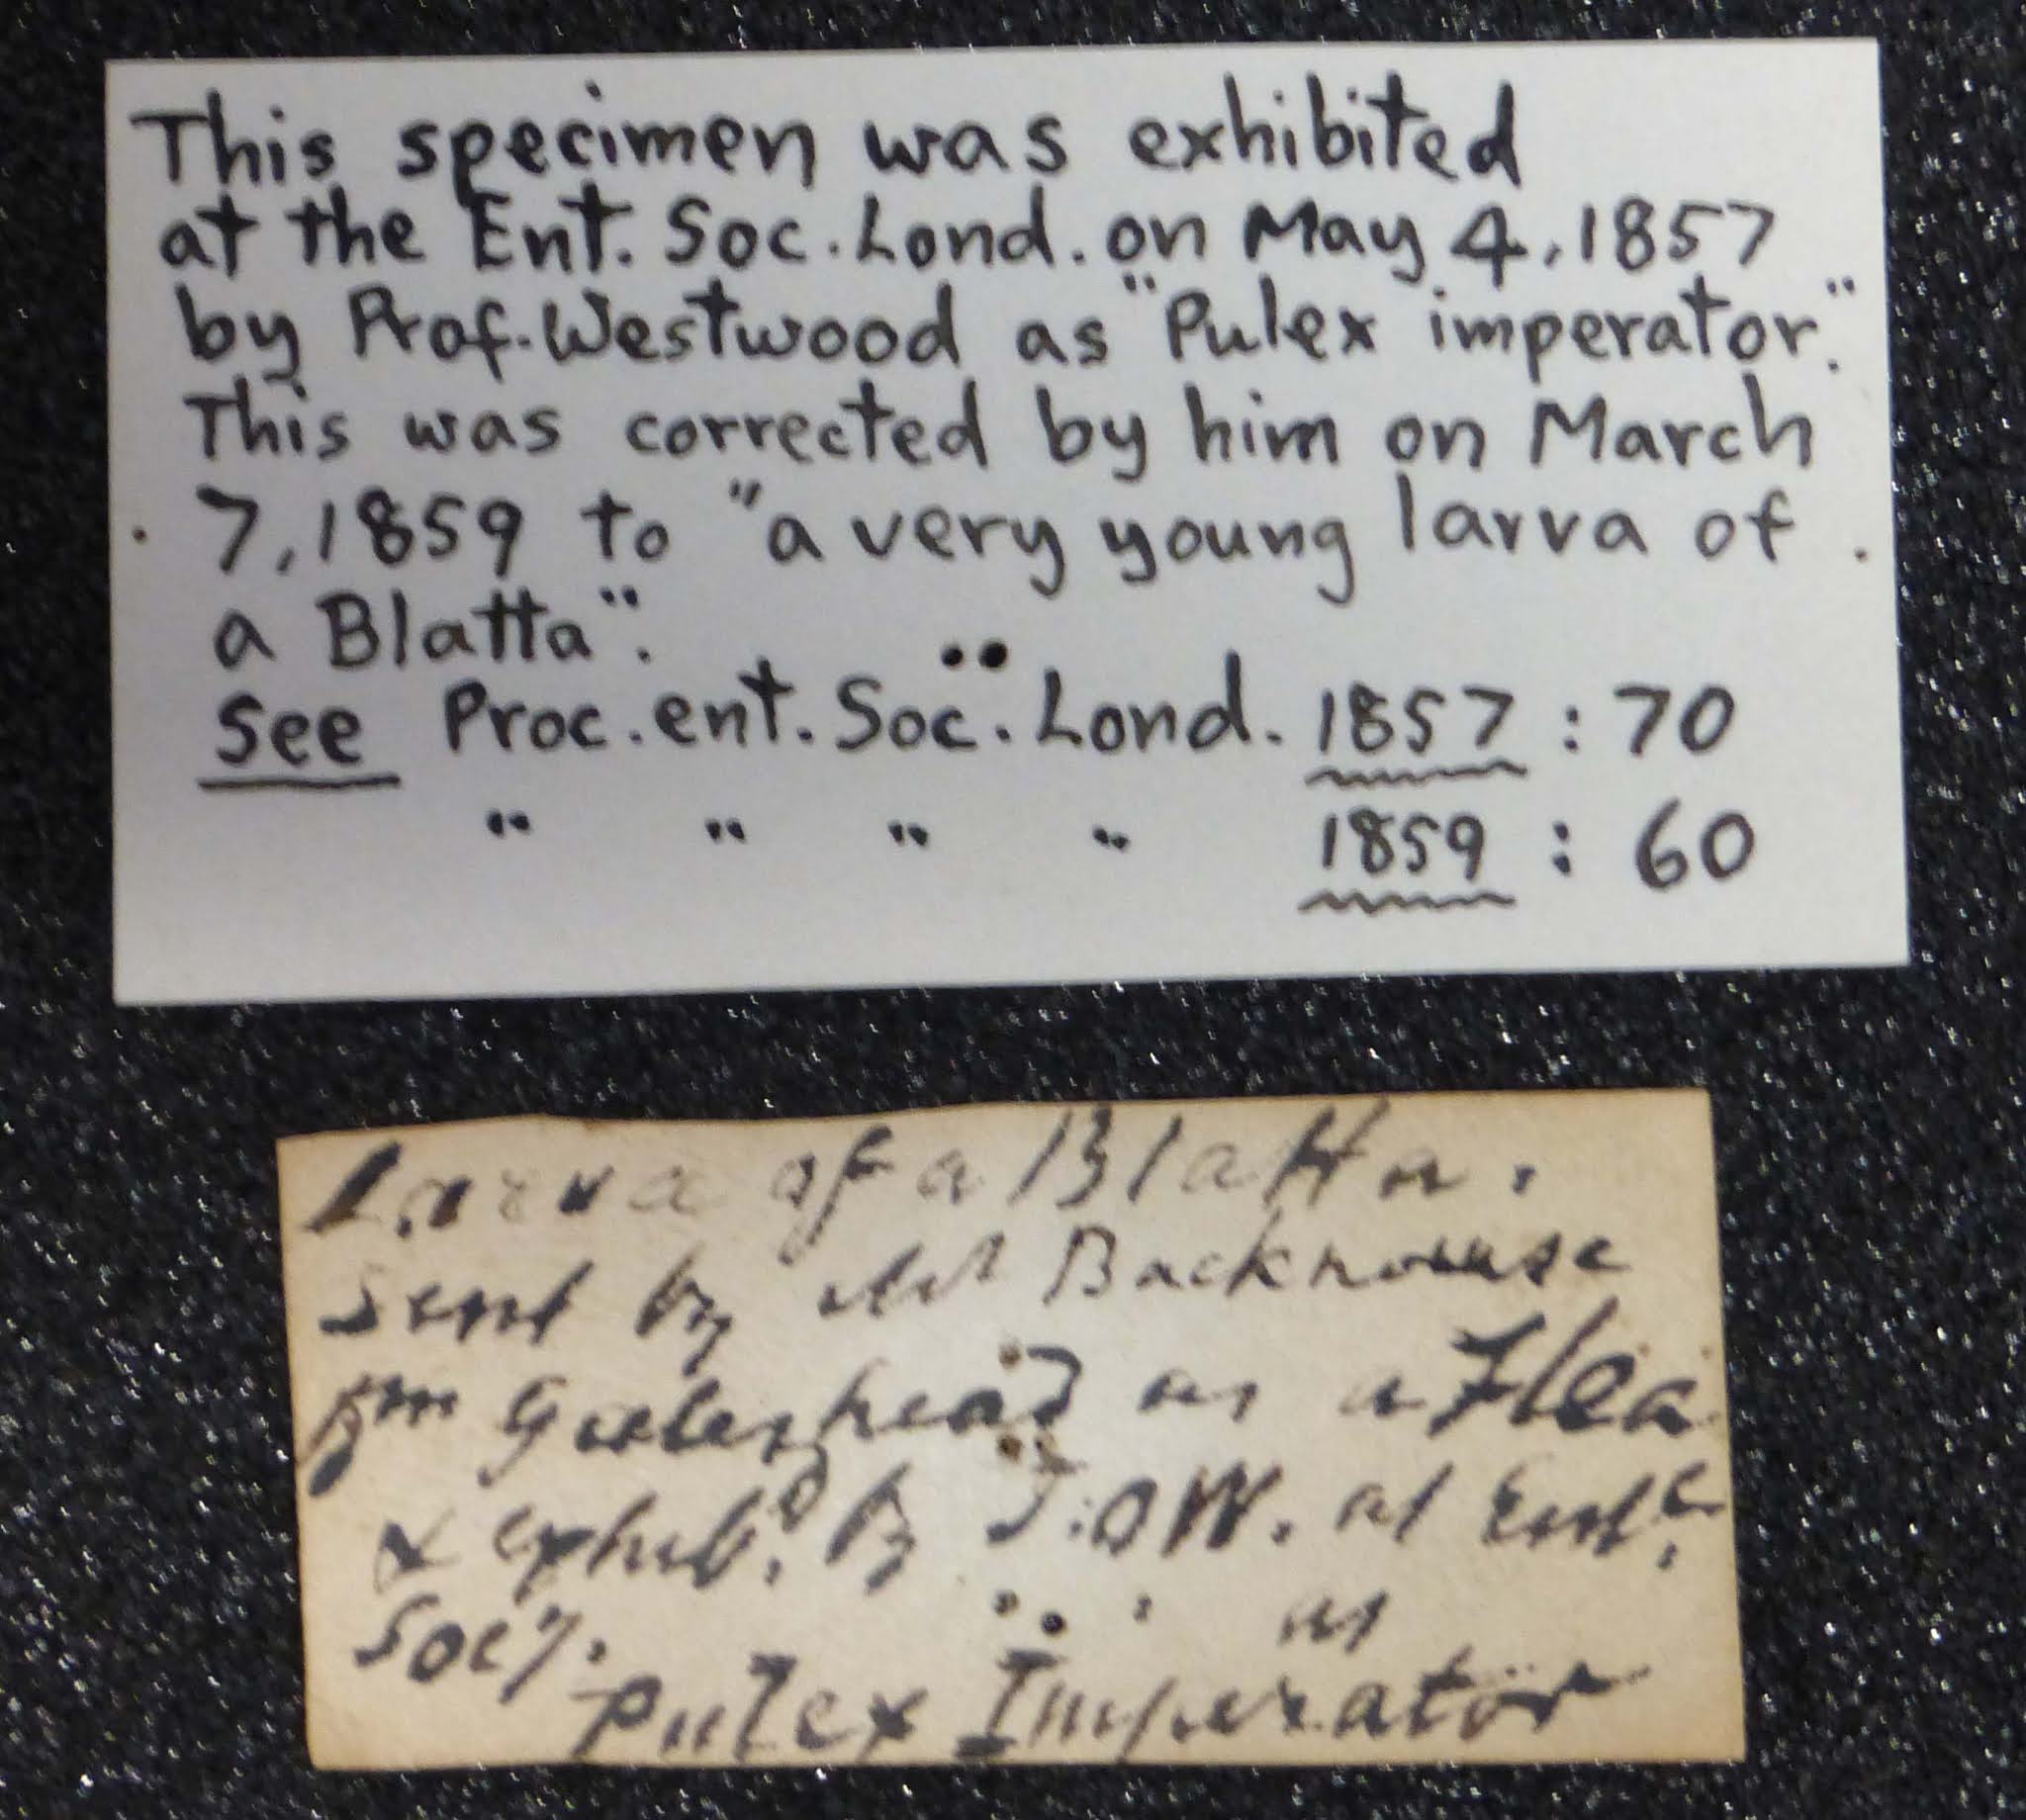 This specimen was exhibited
at the Ent. Soc. Lond. on May 4, 1857
by Prof. Westwood as "Pulex imperator."
This was corrected by him on March
7, 1859 to "a very young larva of
a Blatta".
See Proc. ent. Soc. Lond. 1857 : 70
" " " " 1859 : 60
Larva of a Blatta.
sent by Mr Backhouse
fm Gateshead as a Flea
& exhibd. by J.O.W. at Entl.
Socy. as
Pulex Imperator